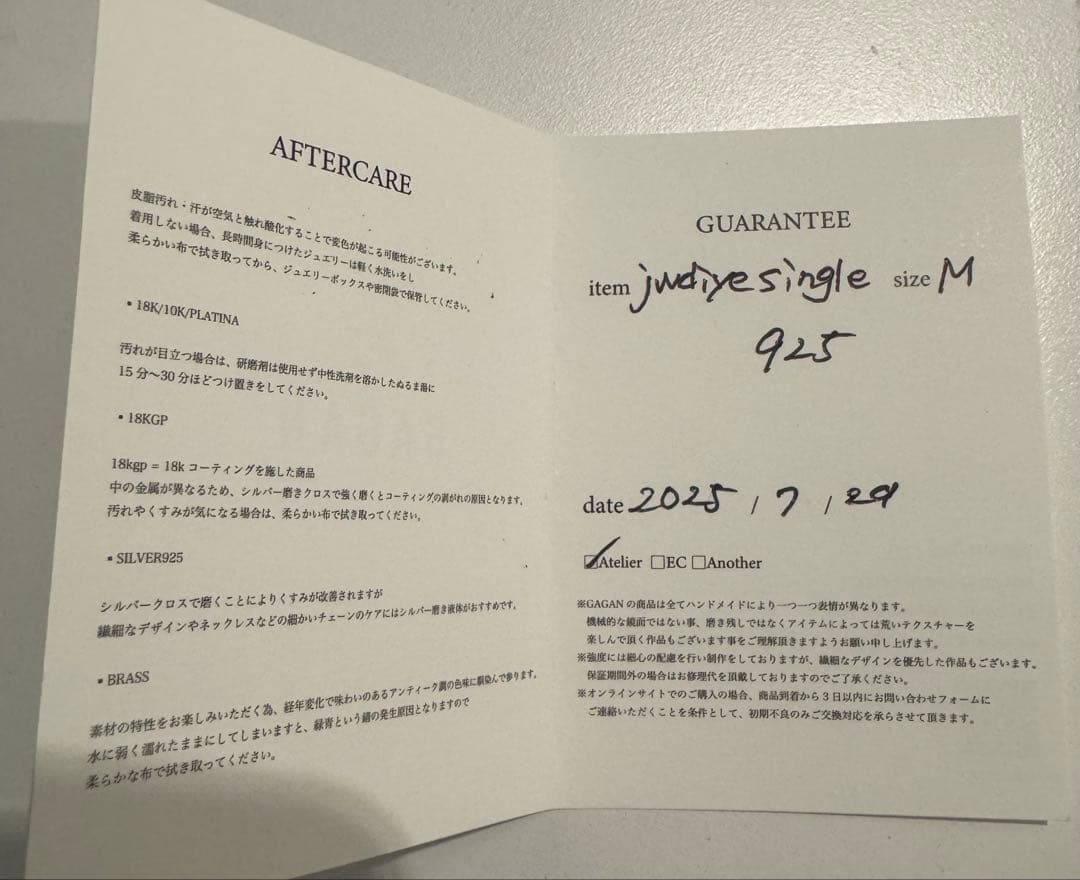 AFTERCARE
皮脂汚れ・汗が空気と触れ酸化することで変色が起こる可能性がございます。
着用しない場合、長時間身につけたジュエリーは軽く水洗いをし
柔らかい布で拭き取ってから、ジュエリーボックスや密閉袋で保管してください。
▪ 18K/10K/PLATINA
汚れが目立つ場合は、研磨剤は使用せず中性洗剤を溶かしたぬるま湯に
15分〜30分ほどつけ置きをしてください。
▪ 18KGP
18kgp = 18k コーティングを施した商品
中の金属が異なるため、シルバー磨きクロスで強く磨くとコーティングの剥がれの原因となります。
汚れやくすみが気になる場合は、柔らかい布で拭き取ってください。
▪ SILVER925
シルバークロスで磨くことによりくすみが改善されますが
繊細なデザインやネックレスなどの細かいチェーンのケアにはシルバー磨き液体がおすすめです。
▪ BRASS
素材の特性をお楽しみいただく為、経年変化で味わいのあるアンティーク調の色味に馴染んで参ります。
水に弱く濡れたままにしてしまいますと、緑青という錆の発生原因となりますので
柔らかな布で拭き取ってください。
GUARANTEE
item jwdiyesingle size M
925
date 2025 / 7 / 29
☑Atelier □EC □Another
※GAGANの商品は全てハンドメイドにより一つ一つ表情が異なります。
機械的な鏡面ではない事、磨き残しではなくアイテムによっては荒いテクスチャーを
楽しんで頂く作品もございます事をご理解頂きますようお願い申し上げます。
※強度には細心の配慮を行い制作をしておりますが、繊細なデザインを優先した作品もございます。
保証期間外の場合はお修理代を頂戴しておりますのでご了承ください。
※オンラインサイトでのご購入の場合、商品到着から3日以内にお問い合わせフォームに
ご連絡いただくことを条件として、初期不良のみご交換対応を承らさせて頂きます。